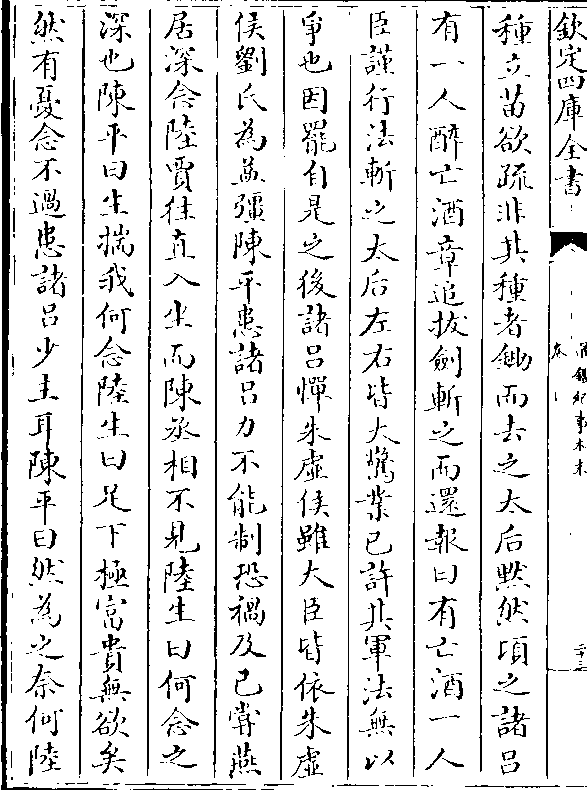 欽定四庫全書
通鑑紀事本末
卷
二十三
種立苗欲疏非其種者鋤而去之太后黙然頃之諸吕
有一人醉亡酒章追拔劍斬之而還報曰有亡酒一人
臣謹行法斬之太后左右皆大驚業已許其軍法無以
爭也因罷自是之後諸吕憚朱虚侯雖大臣皆依朱虚
侯劉氏為益彊陳平患諸吕力不能制恐禍及己嘗燕
居深念陸賈往直入坐而陳丞相不見陸生曰何念之
深也陳平曰生揣我何念陸生曰足下極富貴無欲矣
然有憂念不過患諸吕少主耳陳平曰然為之奈何陸